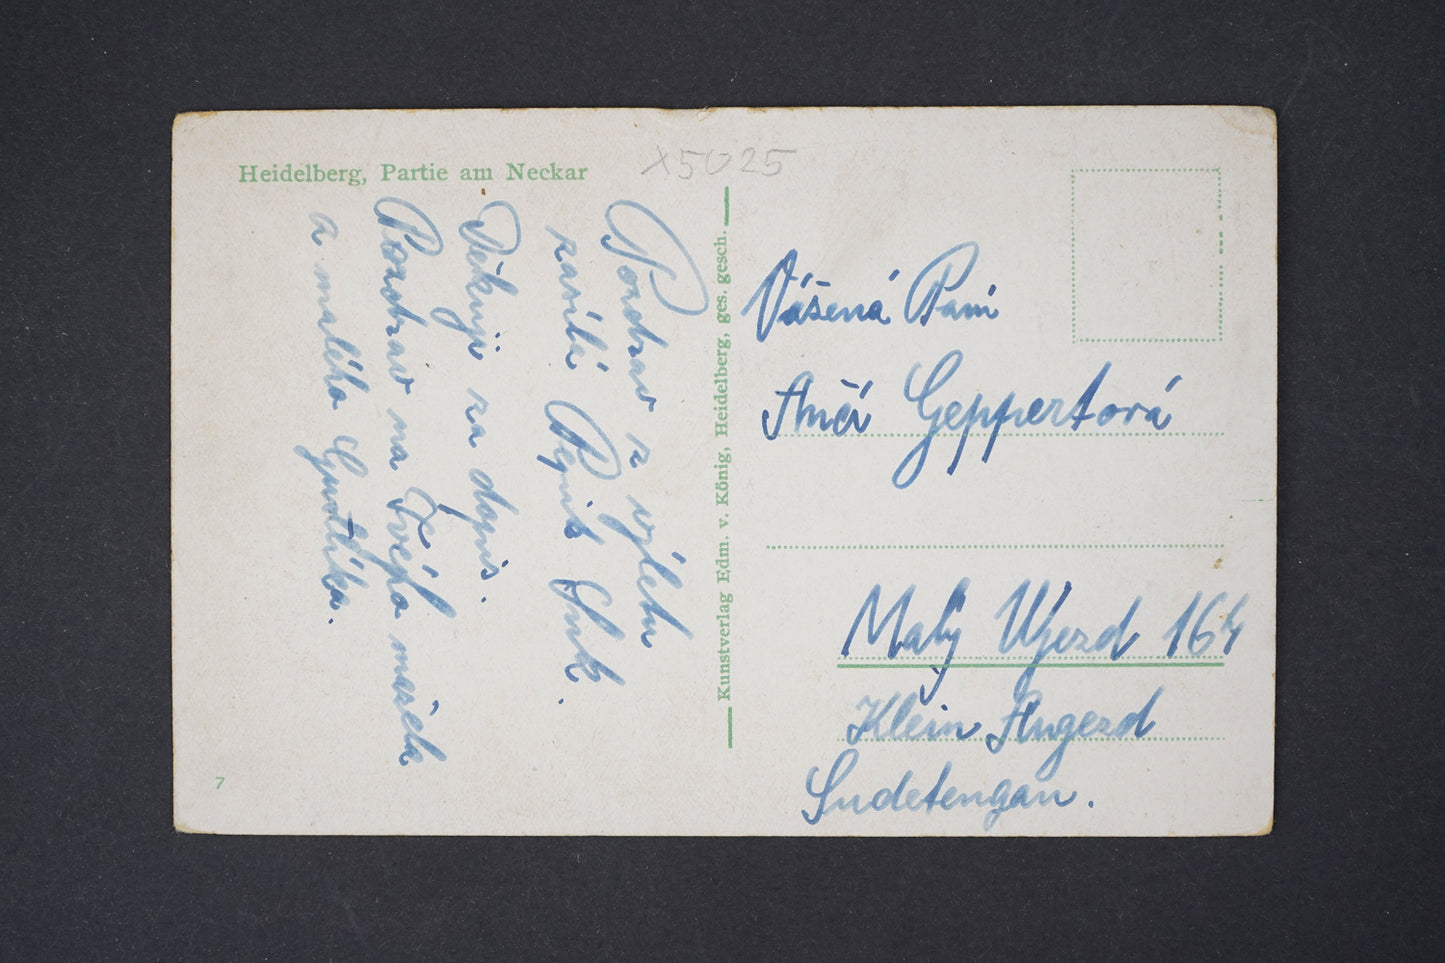 Heidelberg, Partie am Neckar
x5025
Pozdrav z výletu
zasílá Pepík
Děkuji za dopis.
Pozdrav na
a malého Gustíka.
Kunstverlag Edm. v. König, Heidelberg, ges. gesch.
Vášená Paní
Ančí Geppertová
Malý Ujezd 164
Klein Augezd
Sudetengau.
7